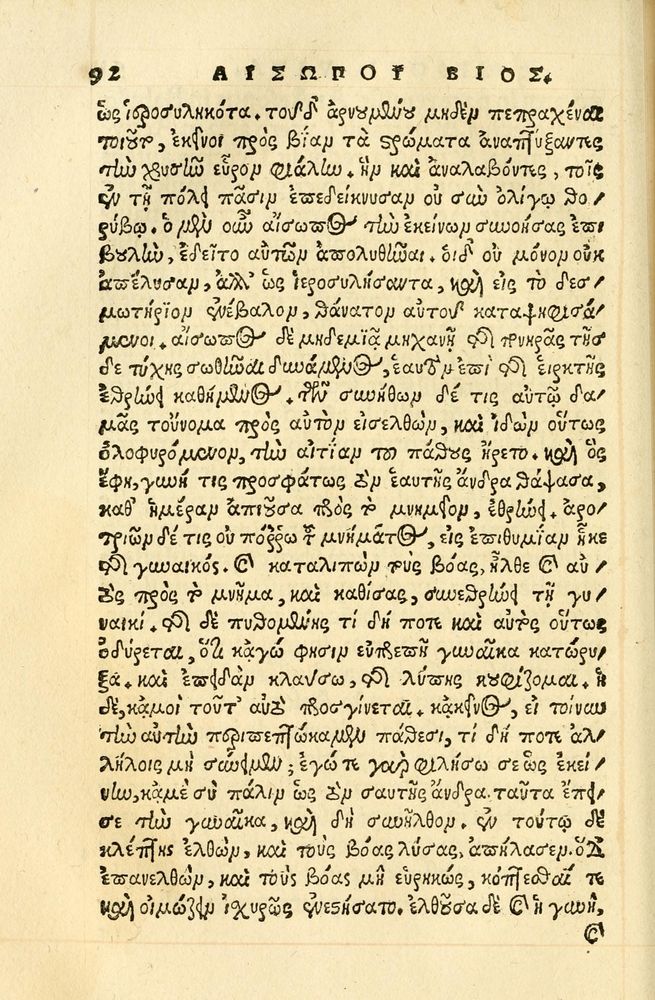 92 ΑΙΣΩΠΟΥ ΒΙΟΣ.
ὡς ἱεροσυληκότα. τοῦ δ' ἀρνουμένου μηδὲν πεπραχέναι
τοιοῦτον, ἐκεῖνοι πρὸς βίαν τὰ στρώματα ἀναπτύξαντες
τὴν χρυσῆν εὗρον φιάλην. ἣν καὶ ἀναλαβόντες, τοῖς
ἐν τῇ πόλει πᾶσιν ἐπεδείκνυσαν οὐ σὺν ὀλίγῳ θο/
ρύβῳ. ὁ μὲν οὖν αἴσωπος τὴν ἐκείνων συνοήσας ἐπι
βουλὴν, ἐδεῖτο αὐτῶν ἀπολυθῆναι. οἱ δ' οὐ μόνον οὐκ
ἀπέλυσαν, ἀλλ' ὡς ἱεροσυλήσαντα, καὶ εἰς τὸ δεσ/
μωτήριον ἐνέβαλον, θάνατον αὐτοῦ καταψηφισά/
μενοι. αἴσωπος δὲ μηδεμιᾷ μηχανῇ τῆς πονηρᾶς τῆσ
δε τύχης σωθῆναι δυνάμενος, ἑαυτὸν ἐπὶ τῆς εἱρκτῆς
ἐθρήνει καθήμενος. τῶν συνήθων δέ τις αὐτῷ δα/
μᾶς τοὔνομα πρὸς αὐτὸν εἰσελθὼν, καὶ ἰδὼν οὕτως
ὀλοφυρόμενον, τὴν αἰτίαν τοῦ πάθους ἤρετο. καὶ ὃς
ἔφη, γυνή τις προσφάτως τὸν ἑαυτῆς ἄνδρα θάψασα,
καθ' ἡμέραν ἀπιοῦσα πρὸς τὸ μνημεῖον, ἐθρήνει. ἀρο/
τριῶν δέ τις οὐ πόρρω τοῦ μνήματος, εἰς ἐπιθυμίαν ἧκε
τῆς γυναικός. καὶ καταλιπὼν τοὺς βόας, ἦλθε καὶ αὐ/
τὸς πρὸς τὸ μνῆμα, καὶ καθίσας, συνεθρήνει τῇ γυ/
ναικί. τῆς δὲ πυθομένης τί δή ποτε καὶ αὐτὸς οὕτως
ὀδύρεται, ὅτι κἀγώ φησιν εὐπρεπῆ γυναῖκα κατώρυ/
ξα. καὶ ἐπειδὰν κλαύσω, τῆς λύπης κουφίζομαι. ἡ
δὲ, κἀμοὶ τοῦτ' αὐτὸ προσγίνεται. κἀκεῖνος, εἰ τοίνυν
τὴν αὐτὴν περιπεπτώκαμεν πάθεσι, τί δή ποτε ἀλ/
λήλοις μὴ σύνεσμεν; ἐγώ τε γὰρ φιλήσω σε ὡς ἐκεί/
νην, κἀμὲ σὺ πάλιν ὡς τὸν σαυτῆς ἄνδρα. ταῦτα ἔπει/
σε τὴν γυναῖκα, καὶ δὴ συνῆλθον. ἐν τούτῳ δὲ
κλέπτης ἐλθὼν, καὶ τοὺς βόας λύσας, ἀπήλασεν. ὁ δὲ
ἐπανελθὼν, καὶ τοὺς βόας μὴ εὑρηκὼς, κόπτεσθαί τε
καὶ οἰμώζειν ἰσχυρῶς ἐνεστήσατο. ἐλθοῦσα δὲ καὶ ἡ γυνὴ,
καὶ